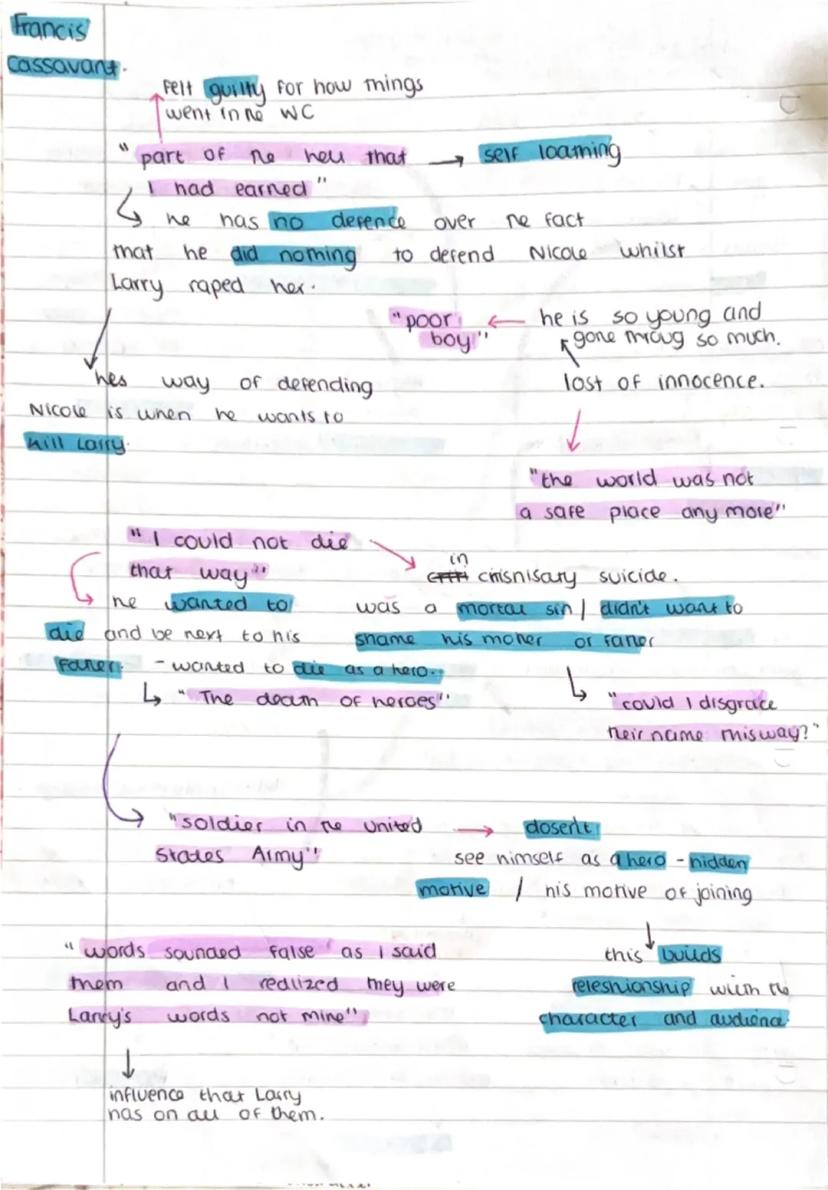 Francis
Cassavant.
felt guilty for how things
went in the WC
"part of the hell that → self loathing
I had earned"
he has no defence over the fact
that he did nothing to defend Nicole whilst
Larry raped her.
"poor ← he is so young and
boy" gone throug so much.
hes way of defending lost of innocence.
Nicole is when he wants to
kill Larry.
"the world was not
a safe place any more"
"I could not die
that way"
in chisnisary suicide.
he wanted to was a mortal sin / didn't want to
die and be next to his shame his mother or father
father. - wanted to die as a hero..
"The death of heroes" "could I disgrace
their name this way?"
"soldier in the United → dosent
States Army" see himself as a hero - hidden
motive / his motive of joining
"words sounded false as I said this builds
them and I realized they were releshionship with the
Larry's words not mine" character and audience
influence that Larry
has on all of them.